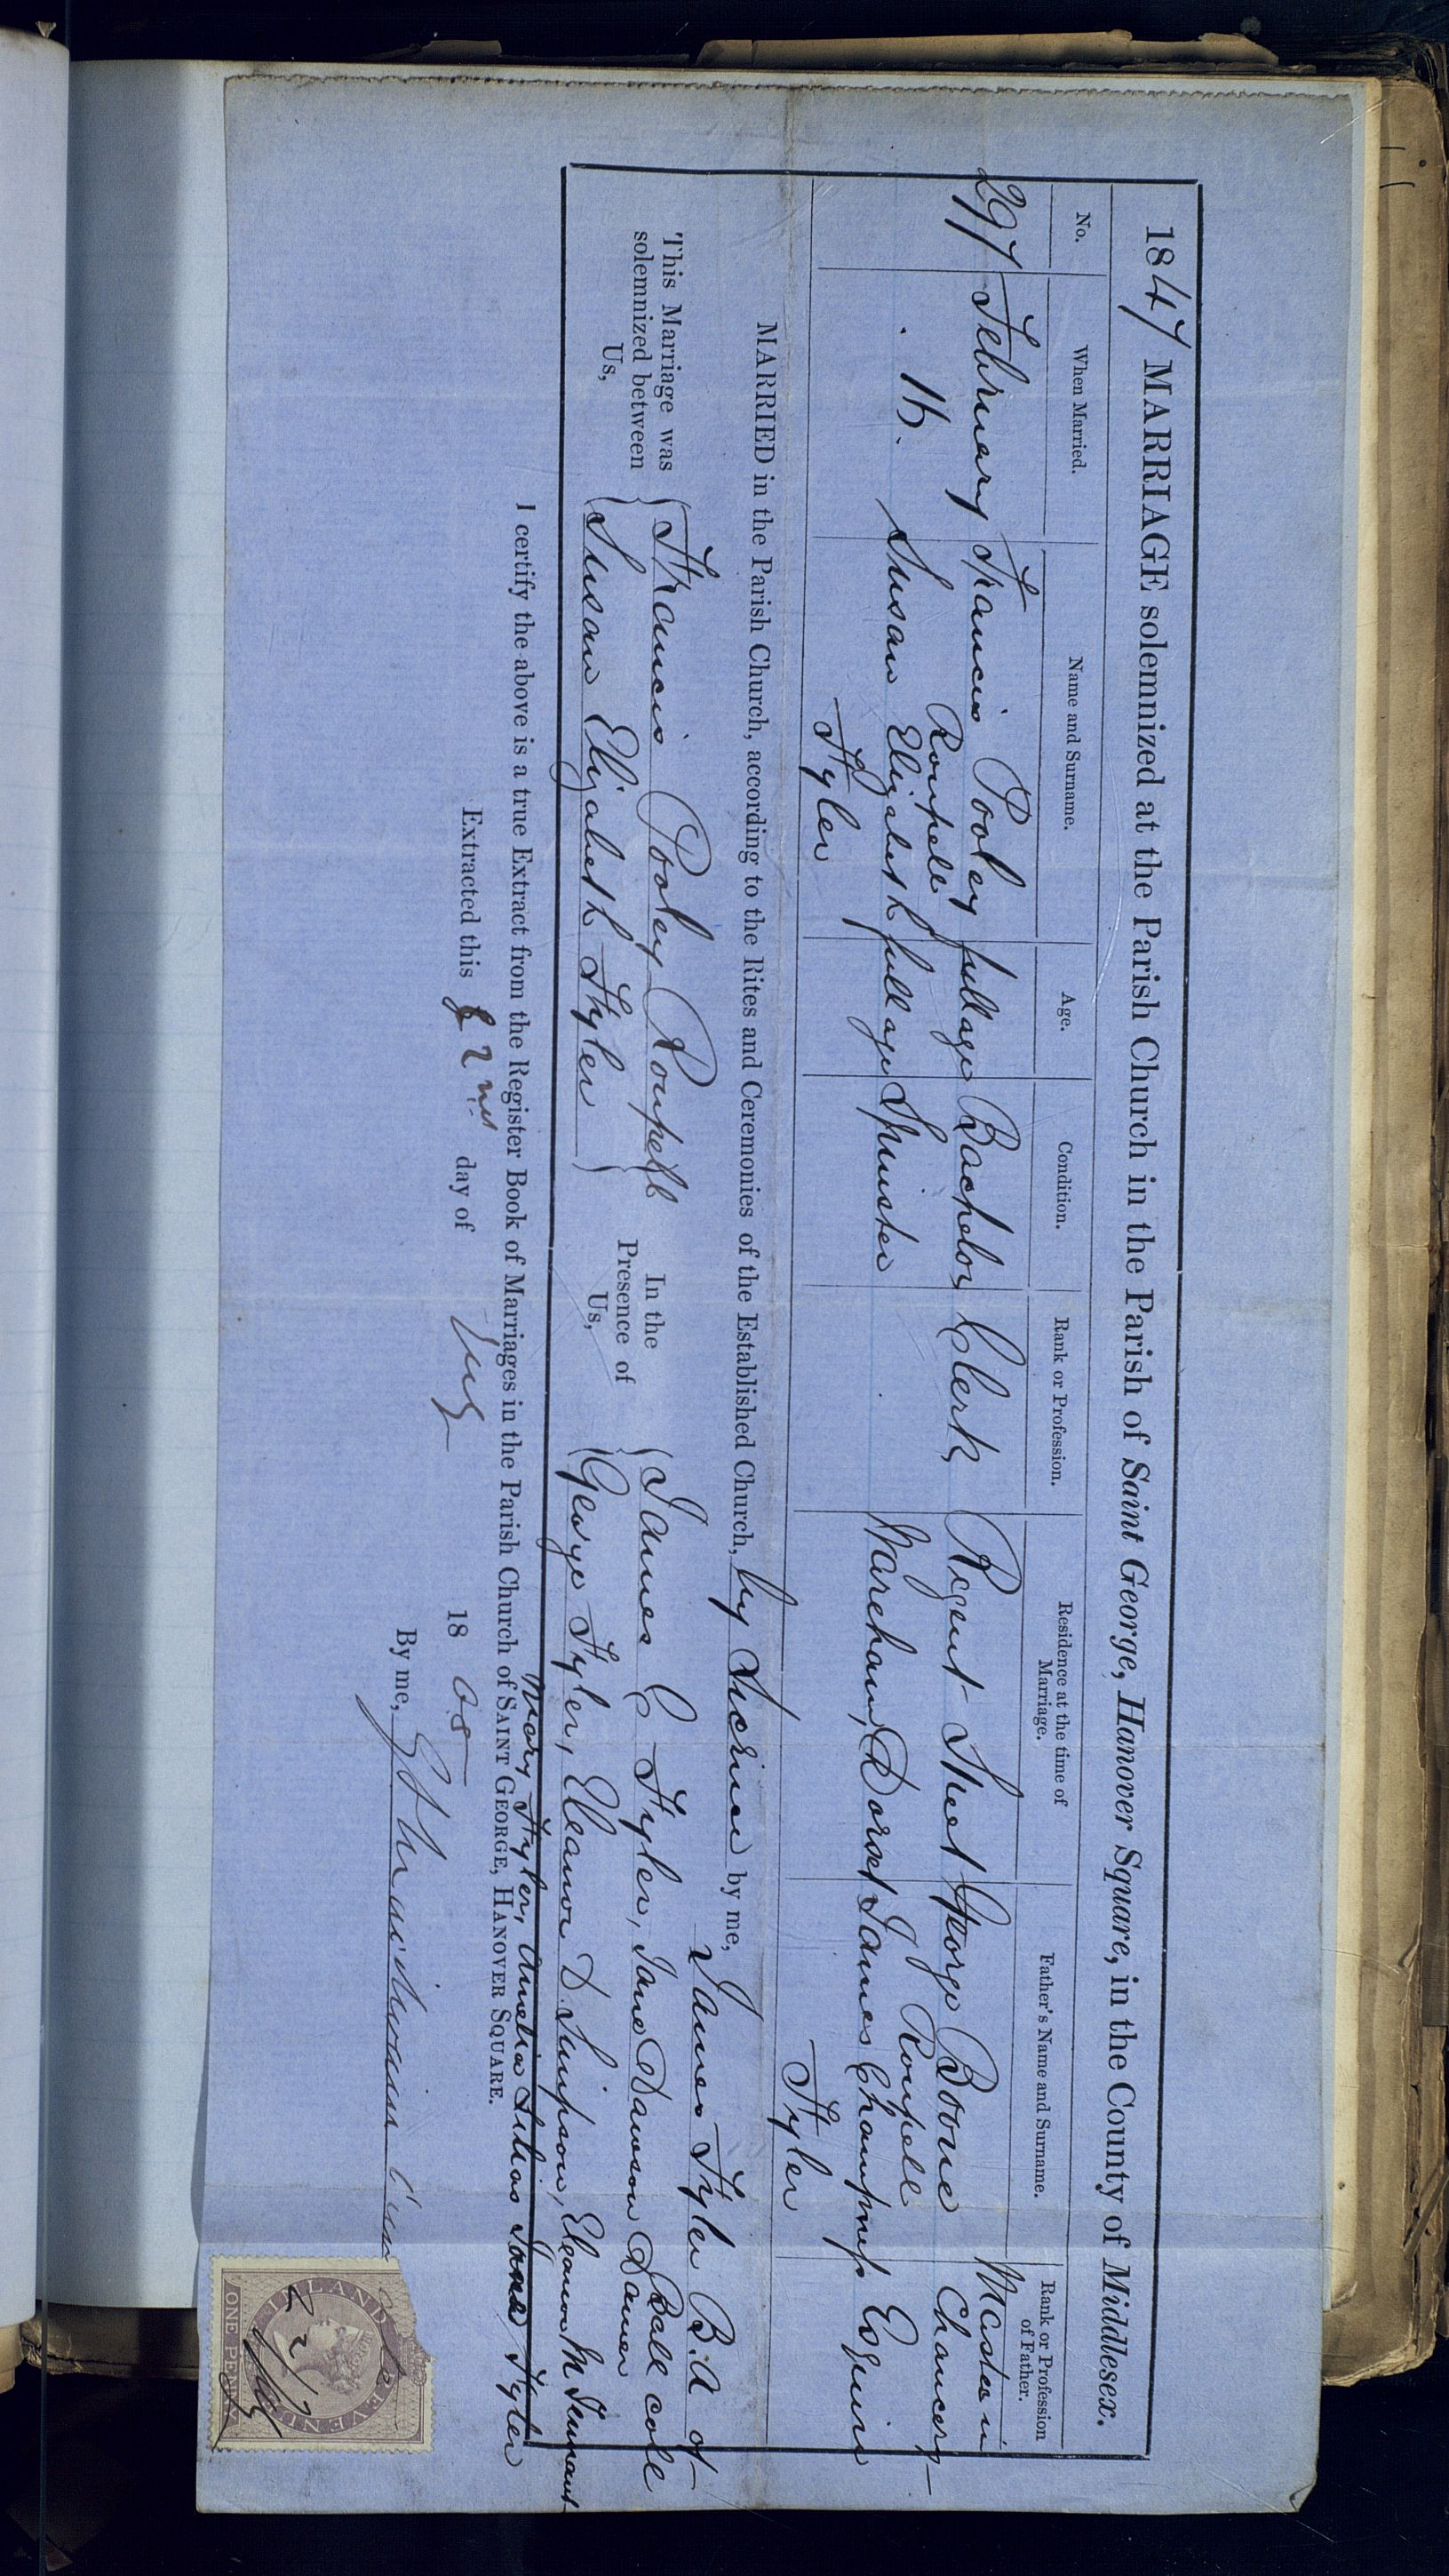 1847 MARRIAGE solemnized at the Parish Church in the Parish of Saint George, Hanover Square, in the County of Middlesex.
No. When Married. Name and Surname. Age. Condition. Rank or Profession. Residence at the time of Marriage. Father's Name and Surname. Rank or Profession of Father.
297 February Francis Pooley full age Bachelor Clerk Regent Street George Boone Master in
Roupell Roupell Chancery
16. Susan Elizabeth full age Spinster Wareham, Dorset James Champness Esquire
Fyler Fyler
MARRIED in the Parish Church, according to the Rites and Ceremonies of the Established Church, by License by me, James Fyler B.A of
Ball coll
This Marriage was solemnized between Us, Francis Pooley Roupell In the Presence of Us, James C Fyler, Jane Dawson Damer
Susan Elizabeth Fyler George Fyler, Eleanor D. Simpson, Eleanor M Tennant
Mary Fyler, Amelia Lilias Jane Fyler
I certify the above is a true Extract from the Register Book of Marriages in the Parish Church of SAINT GEORGE, HANOVER SQUARE.
Extracted this 2nd day of 18 65
By me,
INLAND REVENUE
ONE PENNY